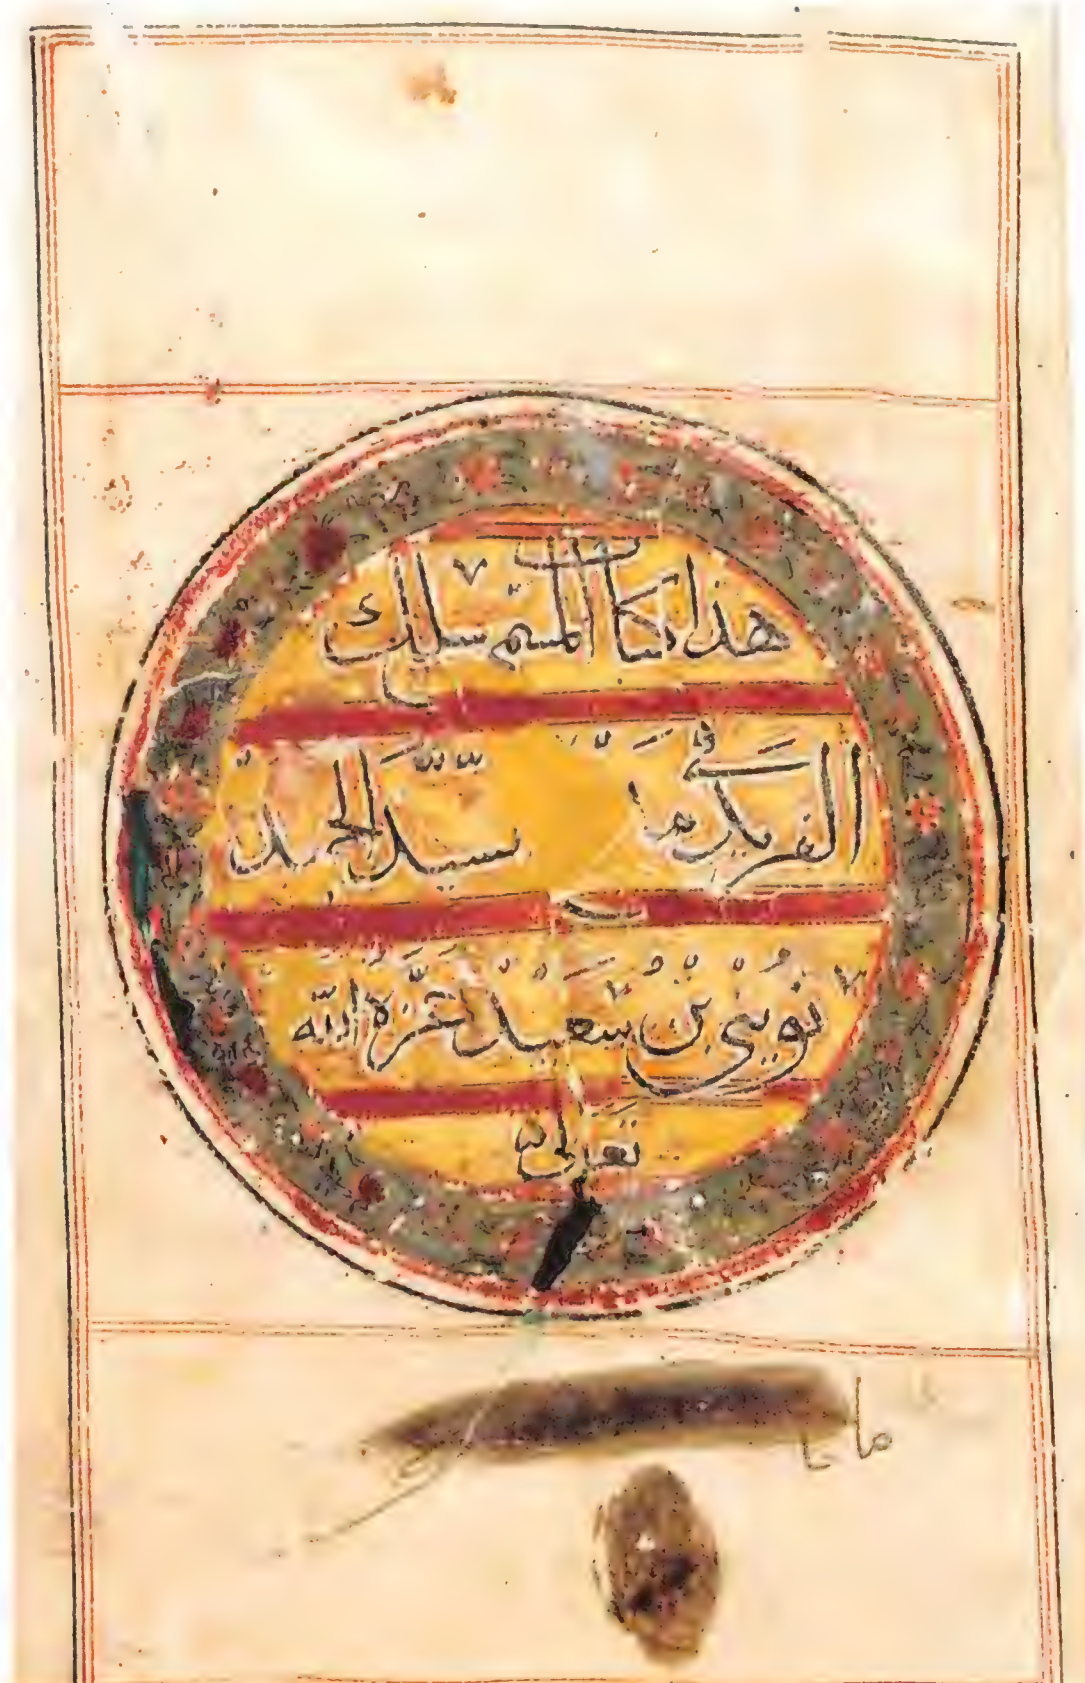 هذا كتاب المسمى سلك
الفريد في سيد الحميد
ثويني بن سعيد اعزه الله
تعالى